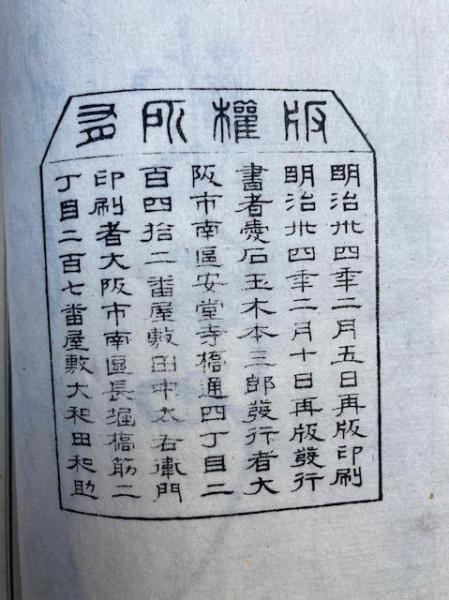 版權所有
明治卅四年二月五日再版印刷
明治卅四年二月十日再版發行
畫者愛石玉木本三郎發行者大
阪市南區安堂寺橋通四丁目二
百四拾二番屋敷田中太右衛門
印刷者大阪市南區長堀橋筋二
丁目二百七番屋敷大和田和助